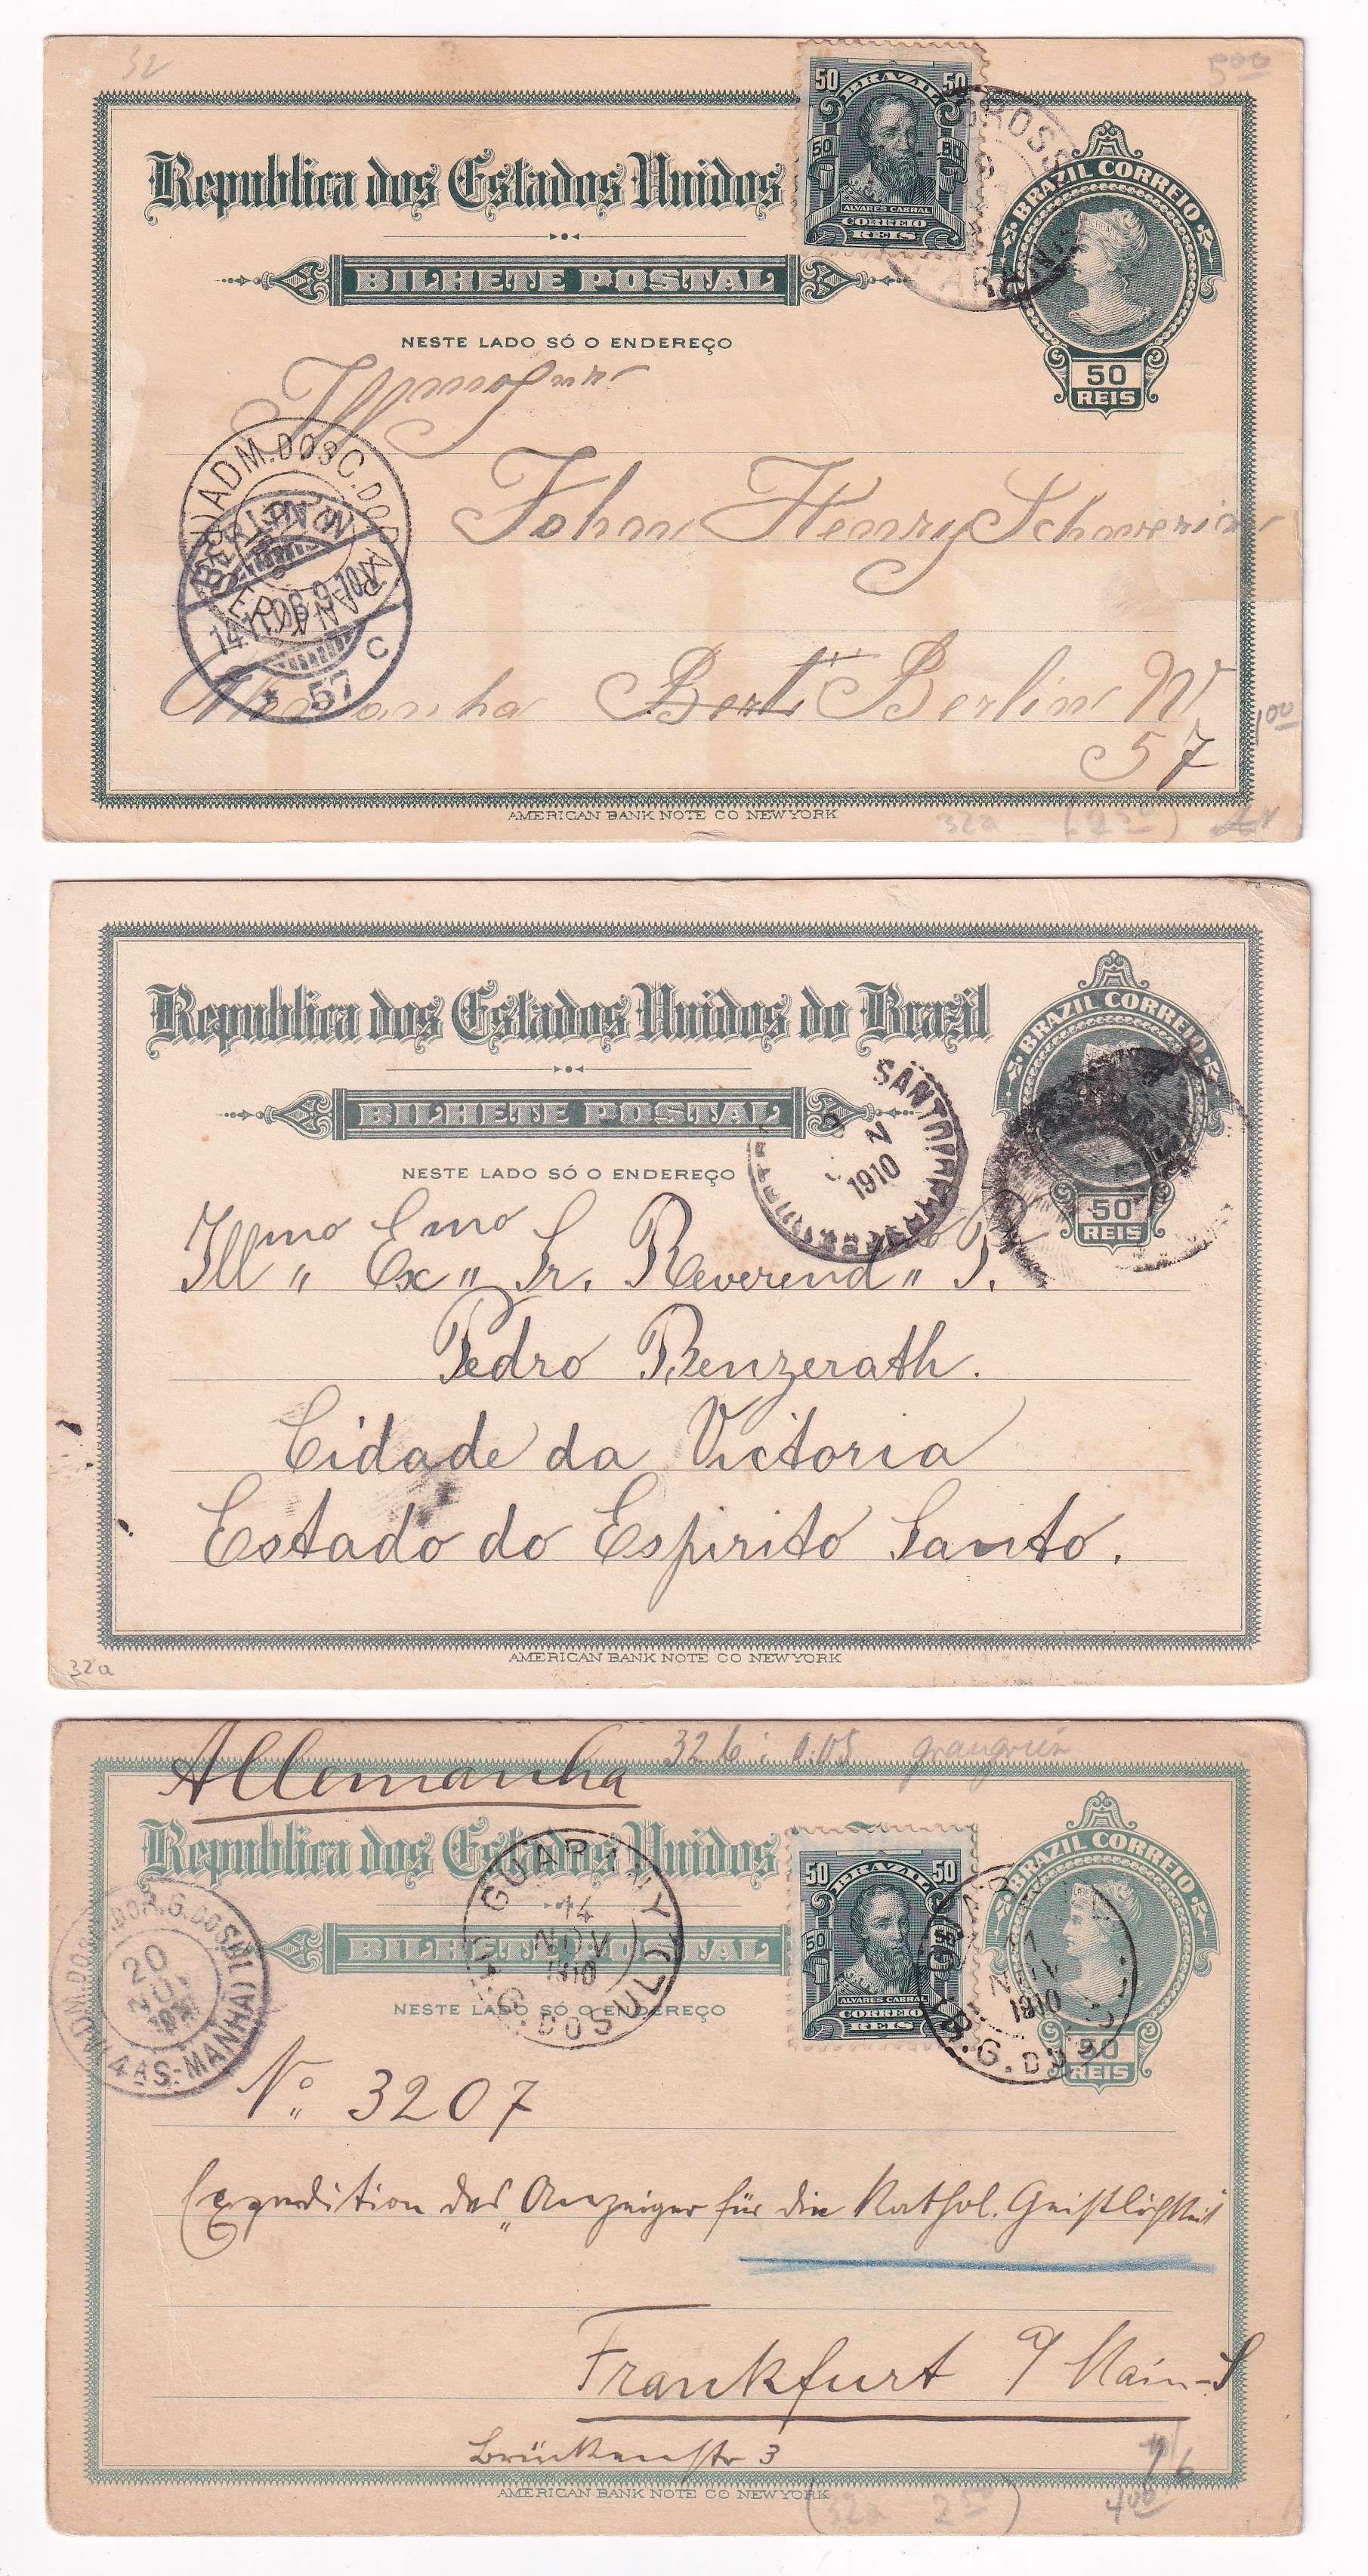 32
500
Republica dos Estados Unidos
50 BRAZIL 50
50
ALVARES CABRAL
CORREIO
REIS
GROSS
BRAZIL CORREIO
BILHETE POSTAL
50
REIS
NESTE LADO SÓ O ENDEREÇO
ADM. DOS C. DO
PARANÁ
John Henry Schwerin
BERLIN W
14.11.10
57 C
Allemanha Berl Berlin W
57
100
AMERICAN BANK NOTE CO NEW YORK
32a (250)
Republica dos Estados Unidos do Brazil
BRAZIL CORREIO
BILHETE POSTAL
1910
NESTE LADO SÓ O ENDEREÇO
50
REIS
Illmo Exmo Sr. Reverendo P.
Pedro Benzerath.
Cidade da Victoria
Estado do Espirito Santo.
AMERICAN BANK NOTE CO NEW YORK
32a
Allemanha
32 b graugrün
Republica dos Estados Unidos
50 BRAZIL 50
50 50
ALVARES CABRAL
CORREIO
REIS
BRAZIL CORREIO
GUARANY
14
NOV
1910
R.G. DO SUL
BILHETE POSTAL
1910
NESTE LADO SÓ O ENDEREÇO
50
REIS
20
NOV
(4 AS-MANHÃ)
No 3207
Expedition des "Anzeiger für die Kathol. Geistlichkeit
Frankfurt a/ Main-S
Brückenstr 3
AMERICAN BANK NOTE CO NEW YORK
(32a 250)
400